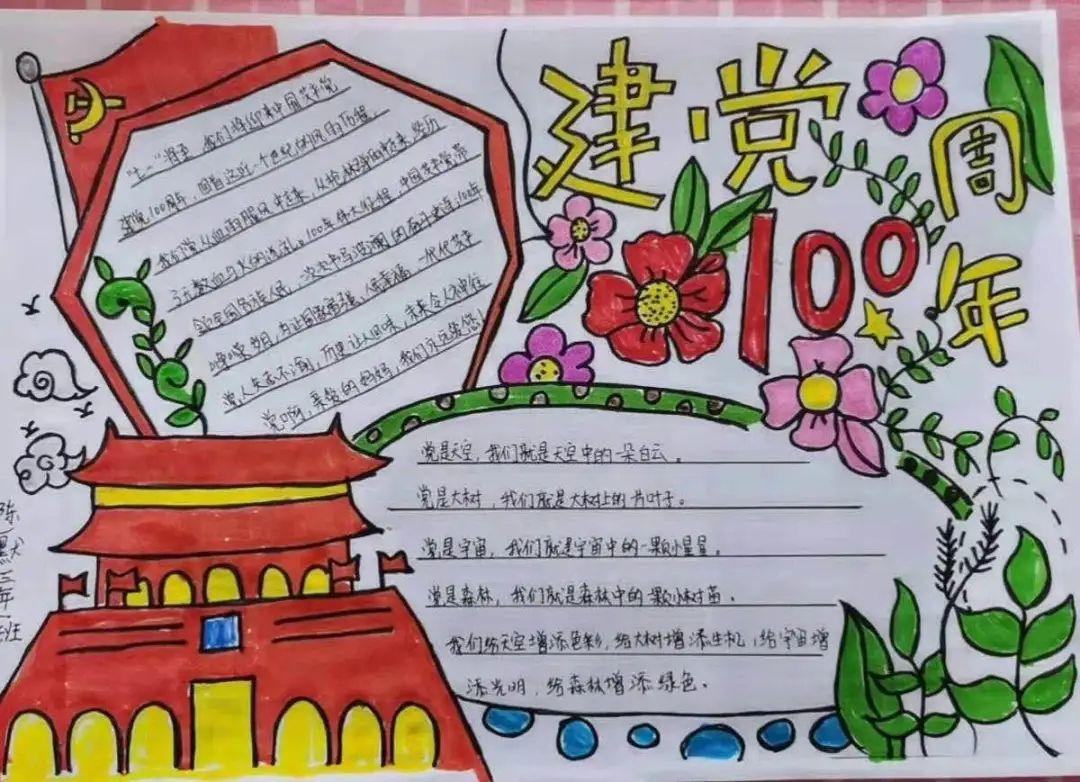 建党100周年
"七一"将至，我们将迎来中国共产党
建党100周年，回首这近一个世纪的风雨历程，
我们党从血雨腥风中走来，从枪林弹雨中走来，经历
了无数血与火的洗礼。100年伟大征程，中国共产党带
领全国各族人民，一次次书写波澜的奋斗史诗；100年
峥嵘岁月，为让国家富强、人民幸福，一代代共产
党人矢志不渝，历史让人回味，未来令人神往
党啊，亲爱的妈妈，我们永远跟您！
党是天空，我们就是天空中的一朵白云。
党是大树，我们就是大树上的片叶子。
党是宇宙，我们就是宇宙中的一颗小星星。
党是森林，我们就是森林中的一颗小树苗。
我们给天空增添色彩，给大树增添生机，给宇宙增
添光明，给森林增添绿色。
陈
默
三年
班